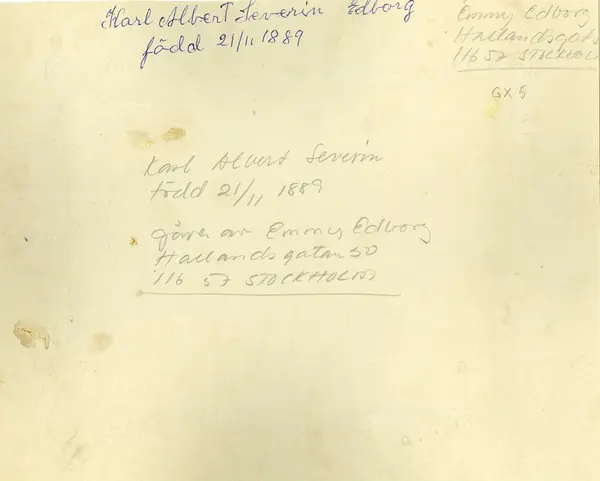 Karl Albert Severin Edborg
född 21/11 1889
Emmy Edborg
Hallandsgata
116 57 STOCKHOL
GX 5
Karl Albert Severin
född 21/11 1889
gåva av Emmy Edborg
Hallandsgatan 50
116 57 STOCKHOLM